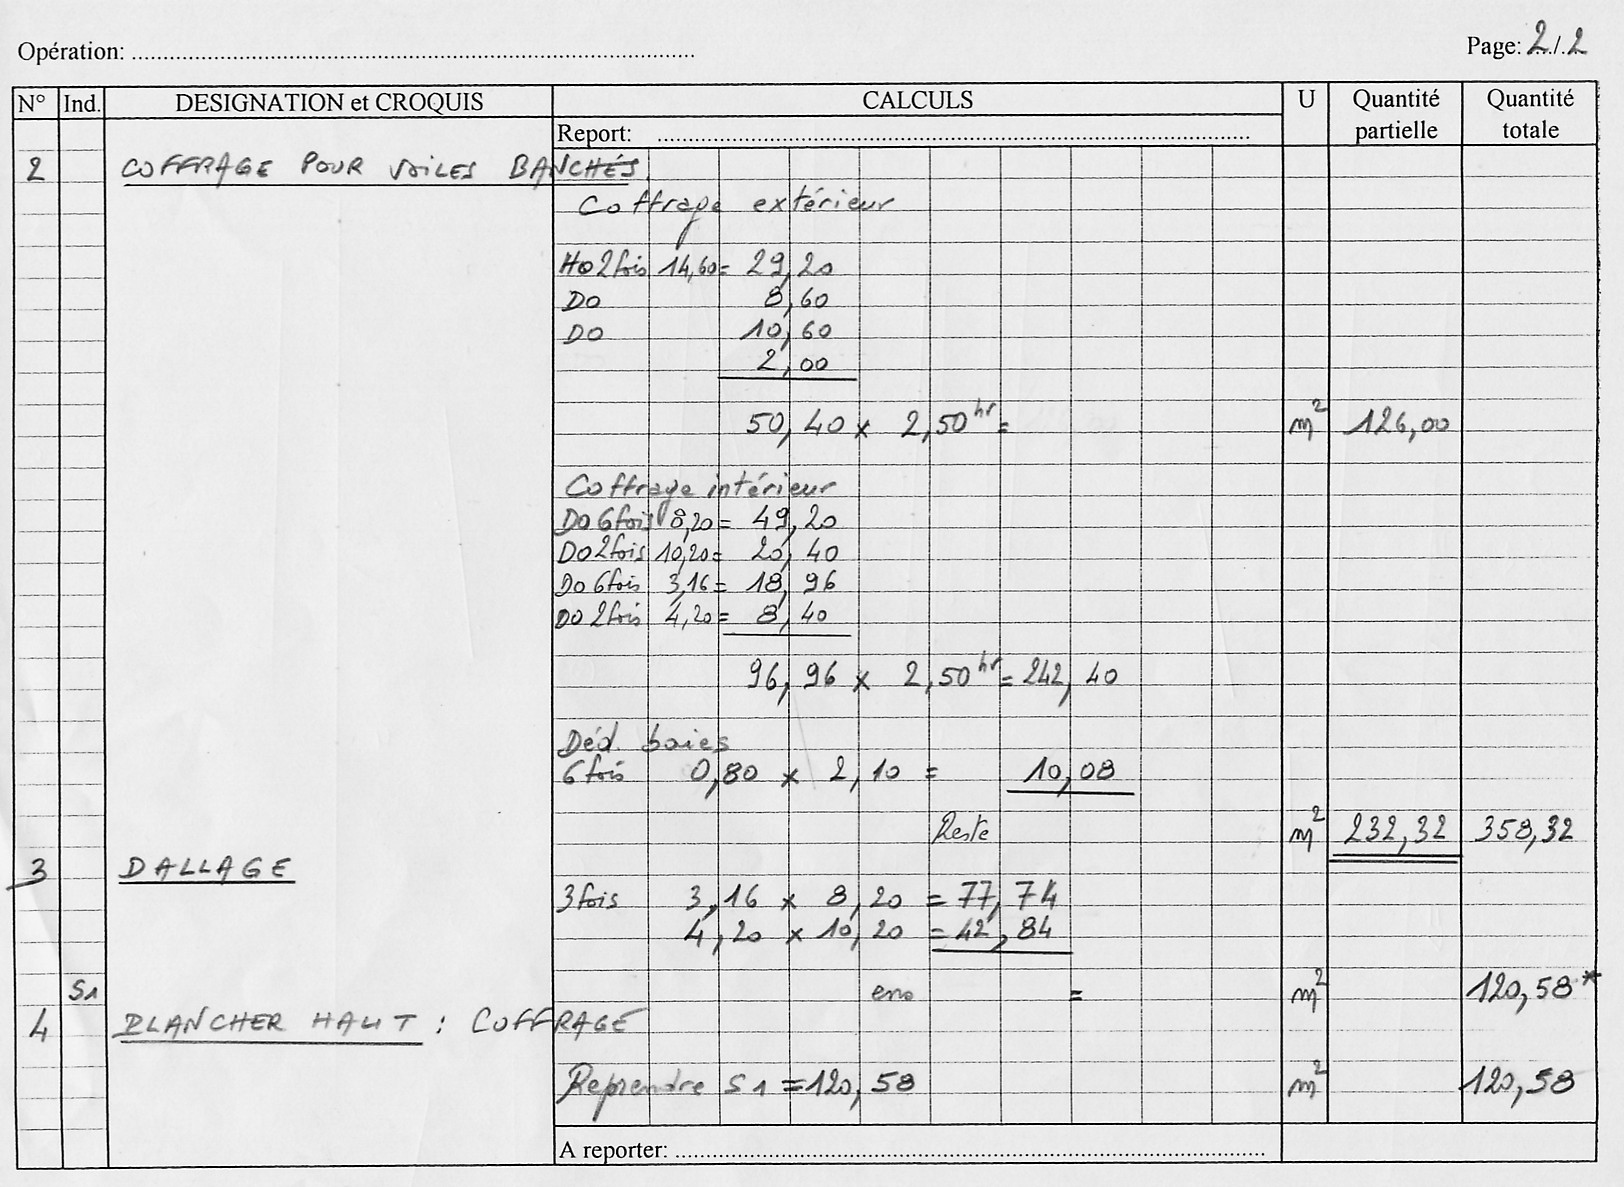 Opération: ........................................ Page: 2 / 2
N° Ind. DESIGNATION et CROQUIS CALCULS U Quantité partielle Quantité totale
Report: ........................................
2 COFFRAGE POUR VOILES BANCHÉS
Coffrage extérieur
Ho 2fois 14,60= 29,20
DO 8,60
DO 10,60
2,00
50,40 x 2,50 hr = m² 126,00
Coffrage intérieur
Do 6fois 8,20= 49,20
Do 2fois 10,20= 20,40
Do 6fois 3,16= 18,96
Do 2fois 4,20= 8,40
96,96 x 2,50 hr = 242,40
Déd. baies
6 fois 0,80 x 2,10 = 10,08
Reste m² 232,32 358,32
3 DALLAGE
3fois 3,16 x 8,20 = 77,74
4,20 x 10,20 = 42,84
S1 ens = m² 120,58*
4 PLANCHER HAUT : COFFRAGE
Reprendre S1 = 120,58 m² 120,58
A reporter: ........................................